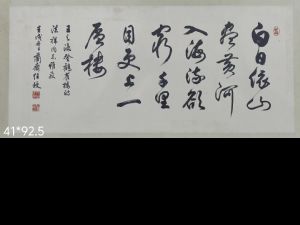 白日依山
尽黄河
入海流欲
穷千里
目更上一
层楼
王之涣登鹳雀楼
41*92.5